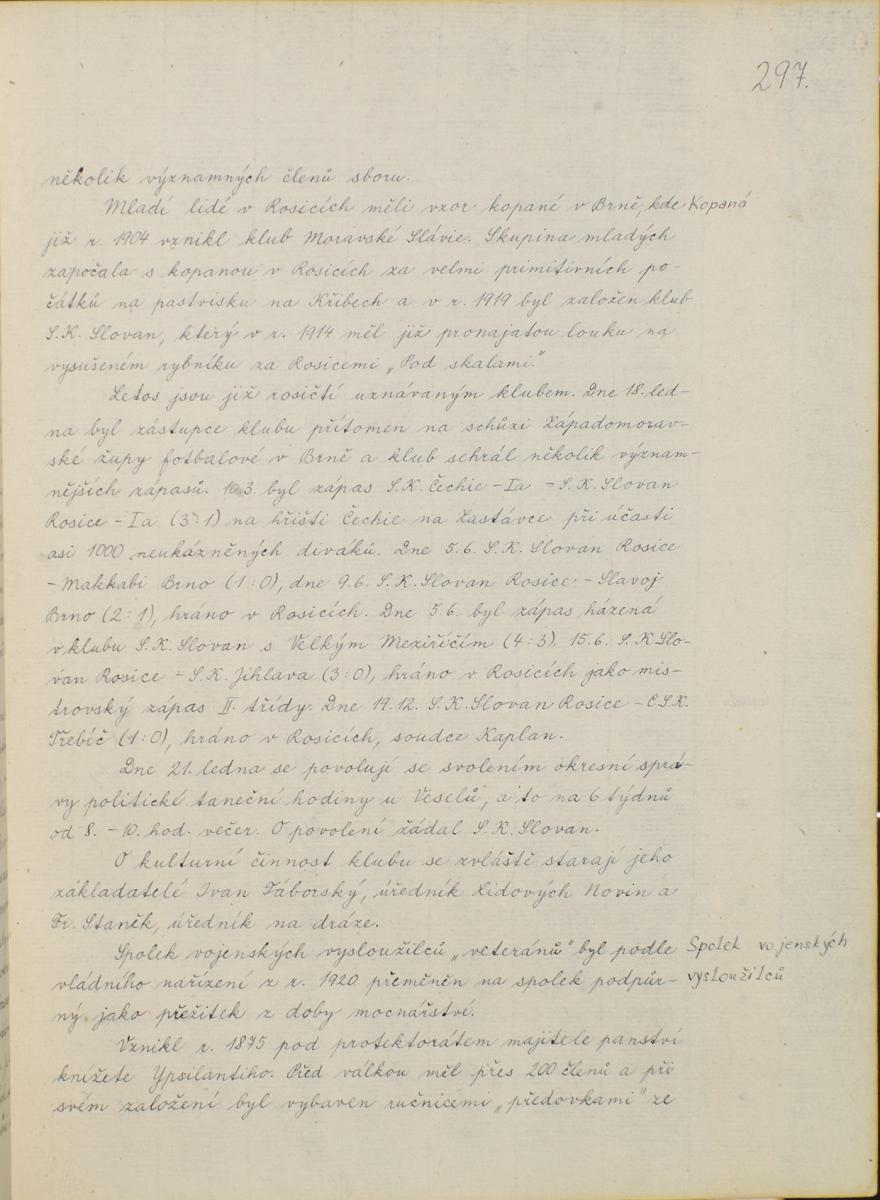 297.
několik významných členů sboru.
Mladí lidé v Rosicích měli vzor kopané v Brně, kde
Kopaná
již r. 1904 vznikl klub Moravské Slávie. Skupina mladých
započala s kopanou v Rosicích za velmi primitivních po-
čátků na pastvisku na Křibech a v r. 1919 byl založen klub
S.K. Slovan, který v r. 1914 měl již pronajatou louku na
vysušeném rybníku za Rosicemi „Pod skalami."
Letos jsou již rosičtí uznávaným klubem. Dne 18. led-
na byl zástupce klubu přítomen na schůzi Západomorav-
ské župy fotbalové v Brně a klub sehrál několik význam-
nějších zápasů. 10.3. byl zápas S.K. Čechie - Ia - S.K. Slovan
Rosice - Ia (3:1) na hřišti Čechie na Zastávce při účasti
asi 1000 neukázněných diváků. Dne 5.6. S.K. Slovan Rosice
- Makkabi Brno (1:0), dne 9.6. S.K. Slovan Rosice - Slavoj
Brno (2:1), hráno v Rosicích. Dne 5.6. byl zápas házená
v klubu S.K. Slovan s Velkým Meziříčím (4:3). 15.6. S.K. Slo-
van Rosice - S.K. Jihlava (3:0), hráno v Rosicích jako mis-
trovský zápas II. třídy. Dne 19.12. S.K. Slovan Rosice - C.S.K.
Třebíč (1:0), hráno v Rosicích, soudce Kaplan.
Dne 21. ledna se povolují se svolením okresní sprá-
vy politické taneční hodiny u Veselů, a to na 6 týdnů
od 8. - 10. hod. večer. O povolení žádal S.K. Slovan.
O kulturní činnost klubu se zvláště starají jeho
základatelé Ivan Táborský, úředník Lidových Novin a
Fr. Staněk, úředník na dráze.
Spolek vojenských vysloužilců „veteránů" byl podle
Spolek vojenských
vysloužilců
vládního nařízení z r. 1920 přeměněn na spolek podpůr-
ný jako přežitek z doby mocnářství.
Vznikl r. 1875 pod protektorátem majitele panství
knížete Ypsilantiho. Před válkou měl přes 200 členů a při
svém založení byl vybaven ručnicemi „předovkami" ze